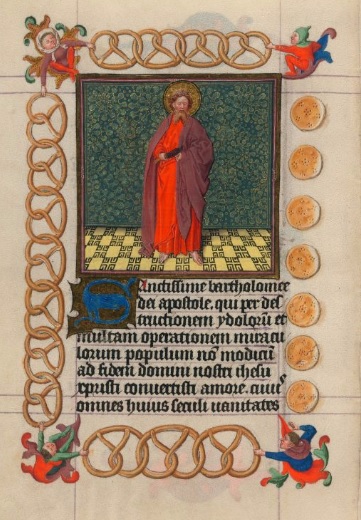 Sanctissime bartholomee
dei apostole, qui per des
tructionem ydolorū et
multam operationem miracu
lorum populum nō modicū
ad fidem domini nostri ihesu
xpristi convertisti amore. cuius
omnes huius seculi vanitates